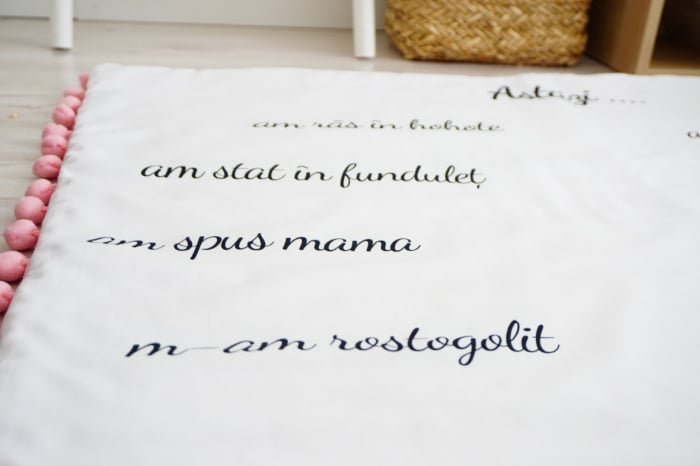 Astăzi ....
am râs în hohote
am stat în funduleț
am spus mama
m-am rostogolit